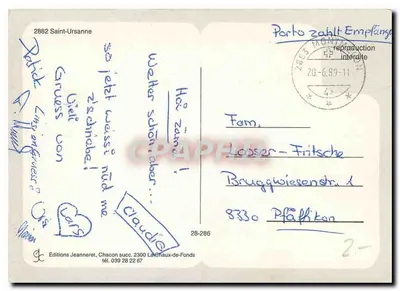 2882 Saint-Ursanne
Porto zahlt Empfänger
reproduction
interdite
20.-6.89-11
Hoi zäme!
Wetter schön, aber...
so jetzt weiss i nüd me
z'schriibe!
Viele
Gruess von
Claudia
Lars
Patrick
Fam.
Looser-Fritsche
Bruggwiesenstr. 1
8330 Pfäffikon
28-286
2-
Editions Jeanneret, Chacon succ. 2300 La Chaux-de-Fonds
tél. 039 28 22 67